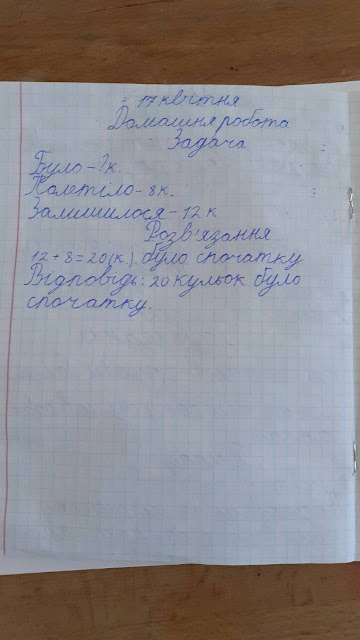 17 квітня
Домашня робота
Задача
Було - ? к.
Полетіло - 8 к.
Залишилося - 12 к
Розв'язання
12 + 8 = 20 (к) було спочатку
Відповідь: 20 кульок було
спочатку.